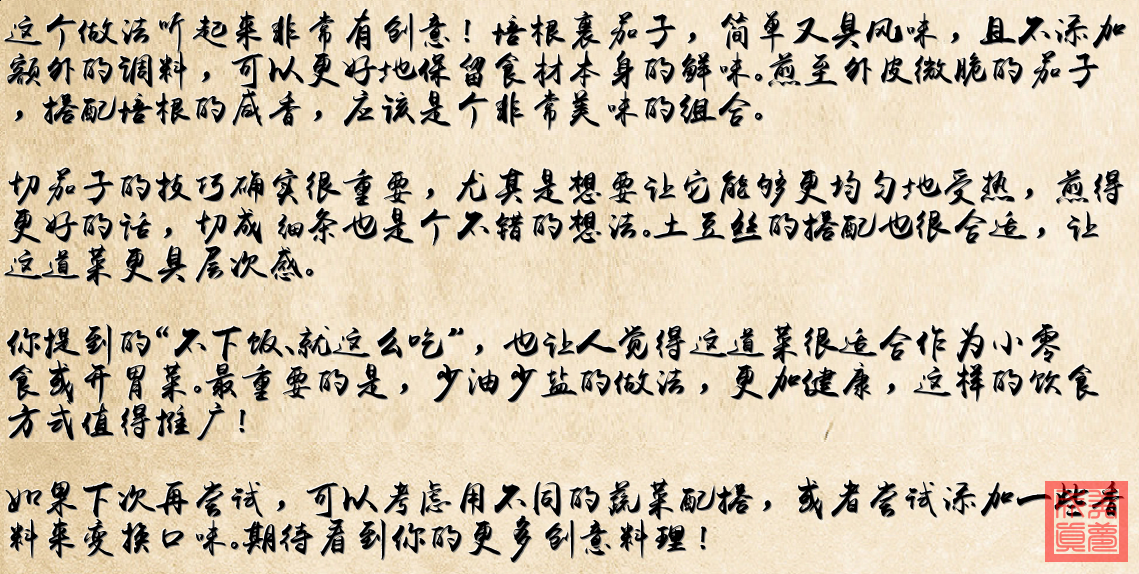 这个做法听起来非常有创意！培根裹茄子，简单又具风味，且不添加
额外的调料，可以更好地保留食材本身的鲜味。煎至外皮微脆的茄子
，搭配培根的咸香，应该是个非常美味的组合。
切茄子的技巧确实很重要，尤其是想要让它能够更均匀地受热，煎得
更好的话，切成细条也是个不错的想法。土豆丝的搭配也很合适，让
这道菜更具层次感。
你提到的“不下饭、就这么吃”，也让人觉得这道菜很适合作为小零
食或开胃菜。最重要的是，少油少盐的做法，更加健康，这样的饮食
方式值得推广！
如果下次再尝试，可以考虑用不同的蔬菜配搭，或者尝试添加一些香
料来变换口味。期待看到你的更多创意料理！